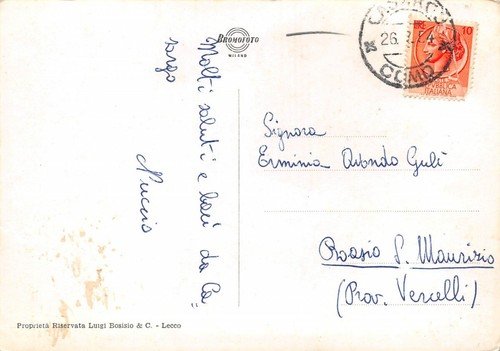 BROMOFOTO
MILANO
Molti saluti e baci da Ca
sargo
Nuccio
CASARGO
26. .54
COMO
LIRE 10
REPUBBLICA
ITALIANA
Signora
Erminia Gulì
Roasio S. Maurizio
(Prov. Vercelli)
Proprietà Riservata Luigi Bosisio & C. - Lecco